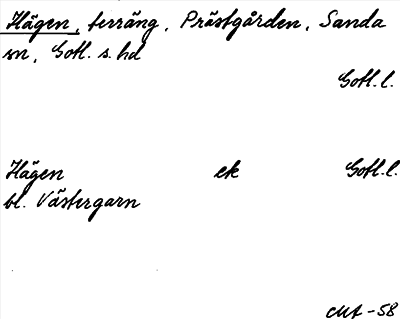 Hägen, terräng, Prästgården, Sanda
sn, Gotl. s. hd
Gotl. l.
Hägen ek Gotl. l.
bl. Västergarn
CMt - 58